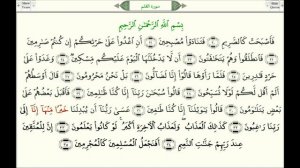 سورة القلم
بِسْمِ ٱللَّهِ ٱلرَّحْمَٰنِ ٱلرَّحِيمِ
فَأَصْبَحَتْ كَٱلصَّرِيمِ فَتَنَادَوْا۟ مُصْبِحِينَ أَنِ ٱغْدُوا۟ عَلَىٰ حَرْثِكُمْ إِن كُنتُمْ صَٰرِمِينَ
فَٱنطَلَقُوا۟ وَهُمْ يَتَخَٰفَتُونَ أَن لَّا يَدْخُلَنَّهَا ٱلْيَوْمَ عَلَيْكُم مِّسْكِينٌ وَغَدَوْا۟ عَلَىٰ
حَرْدٍ قَٰدِرِينَ فَلَمَّا رَأَوْهَا قَالُوٓا۟ إِنَّا لَضَآلُّونَ بَلْ نَحْنُ مَحْرُومُونَ قَالَ
أَوْسَطُهُمْ أَلَمْ أَقُل لَّكُمْ لَوْلَا تُسَبِّحُونَ قَالُوا۟ سُبْحَٰنَ رَبِّنَآ إِنَّا كُنَّا ظَٰلِمِينَ فَأَقْبَلَ بَعْضُهُمْ عَلَىٰ
بَعْضٍ يَتَلَٰوَمُونَ قَالُوا۟ يَٰوَيْلَنَآ إِنَّا كُنَّا طَٰغِينَ عَسَىٰ رَبُّنَآ أَن يُبْدِلَنَا خَيْرًا مِّنْهَآ إِنَّآ إِلَىٰ
رَبِّنَا رَٰغِبُونَ كَذَٰلِكَ ٱلْعَذَابُ وَلَعَذَابُ ٱلْءَاخِرَةِ أَكْبَرُ لَوْ كَانُوا۟ يَعْلَمُونَ إِنَّ لِلْمُتَّقِينَ
عِندَ رَبِّهِمْ جَنَّٰتِ ٱلنَّعِيمِ أَفَنَجْعَلُ ٱلْمُسْلِمِينَ كَٱلْمُجْرِمِينَ